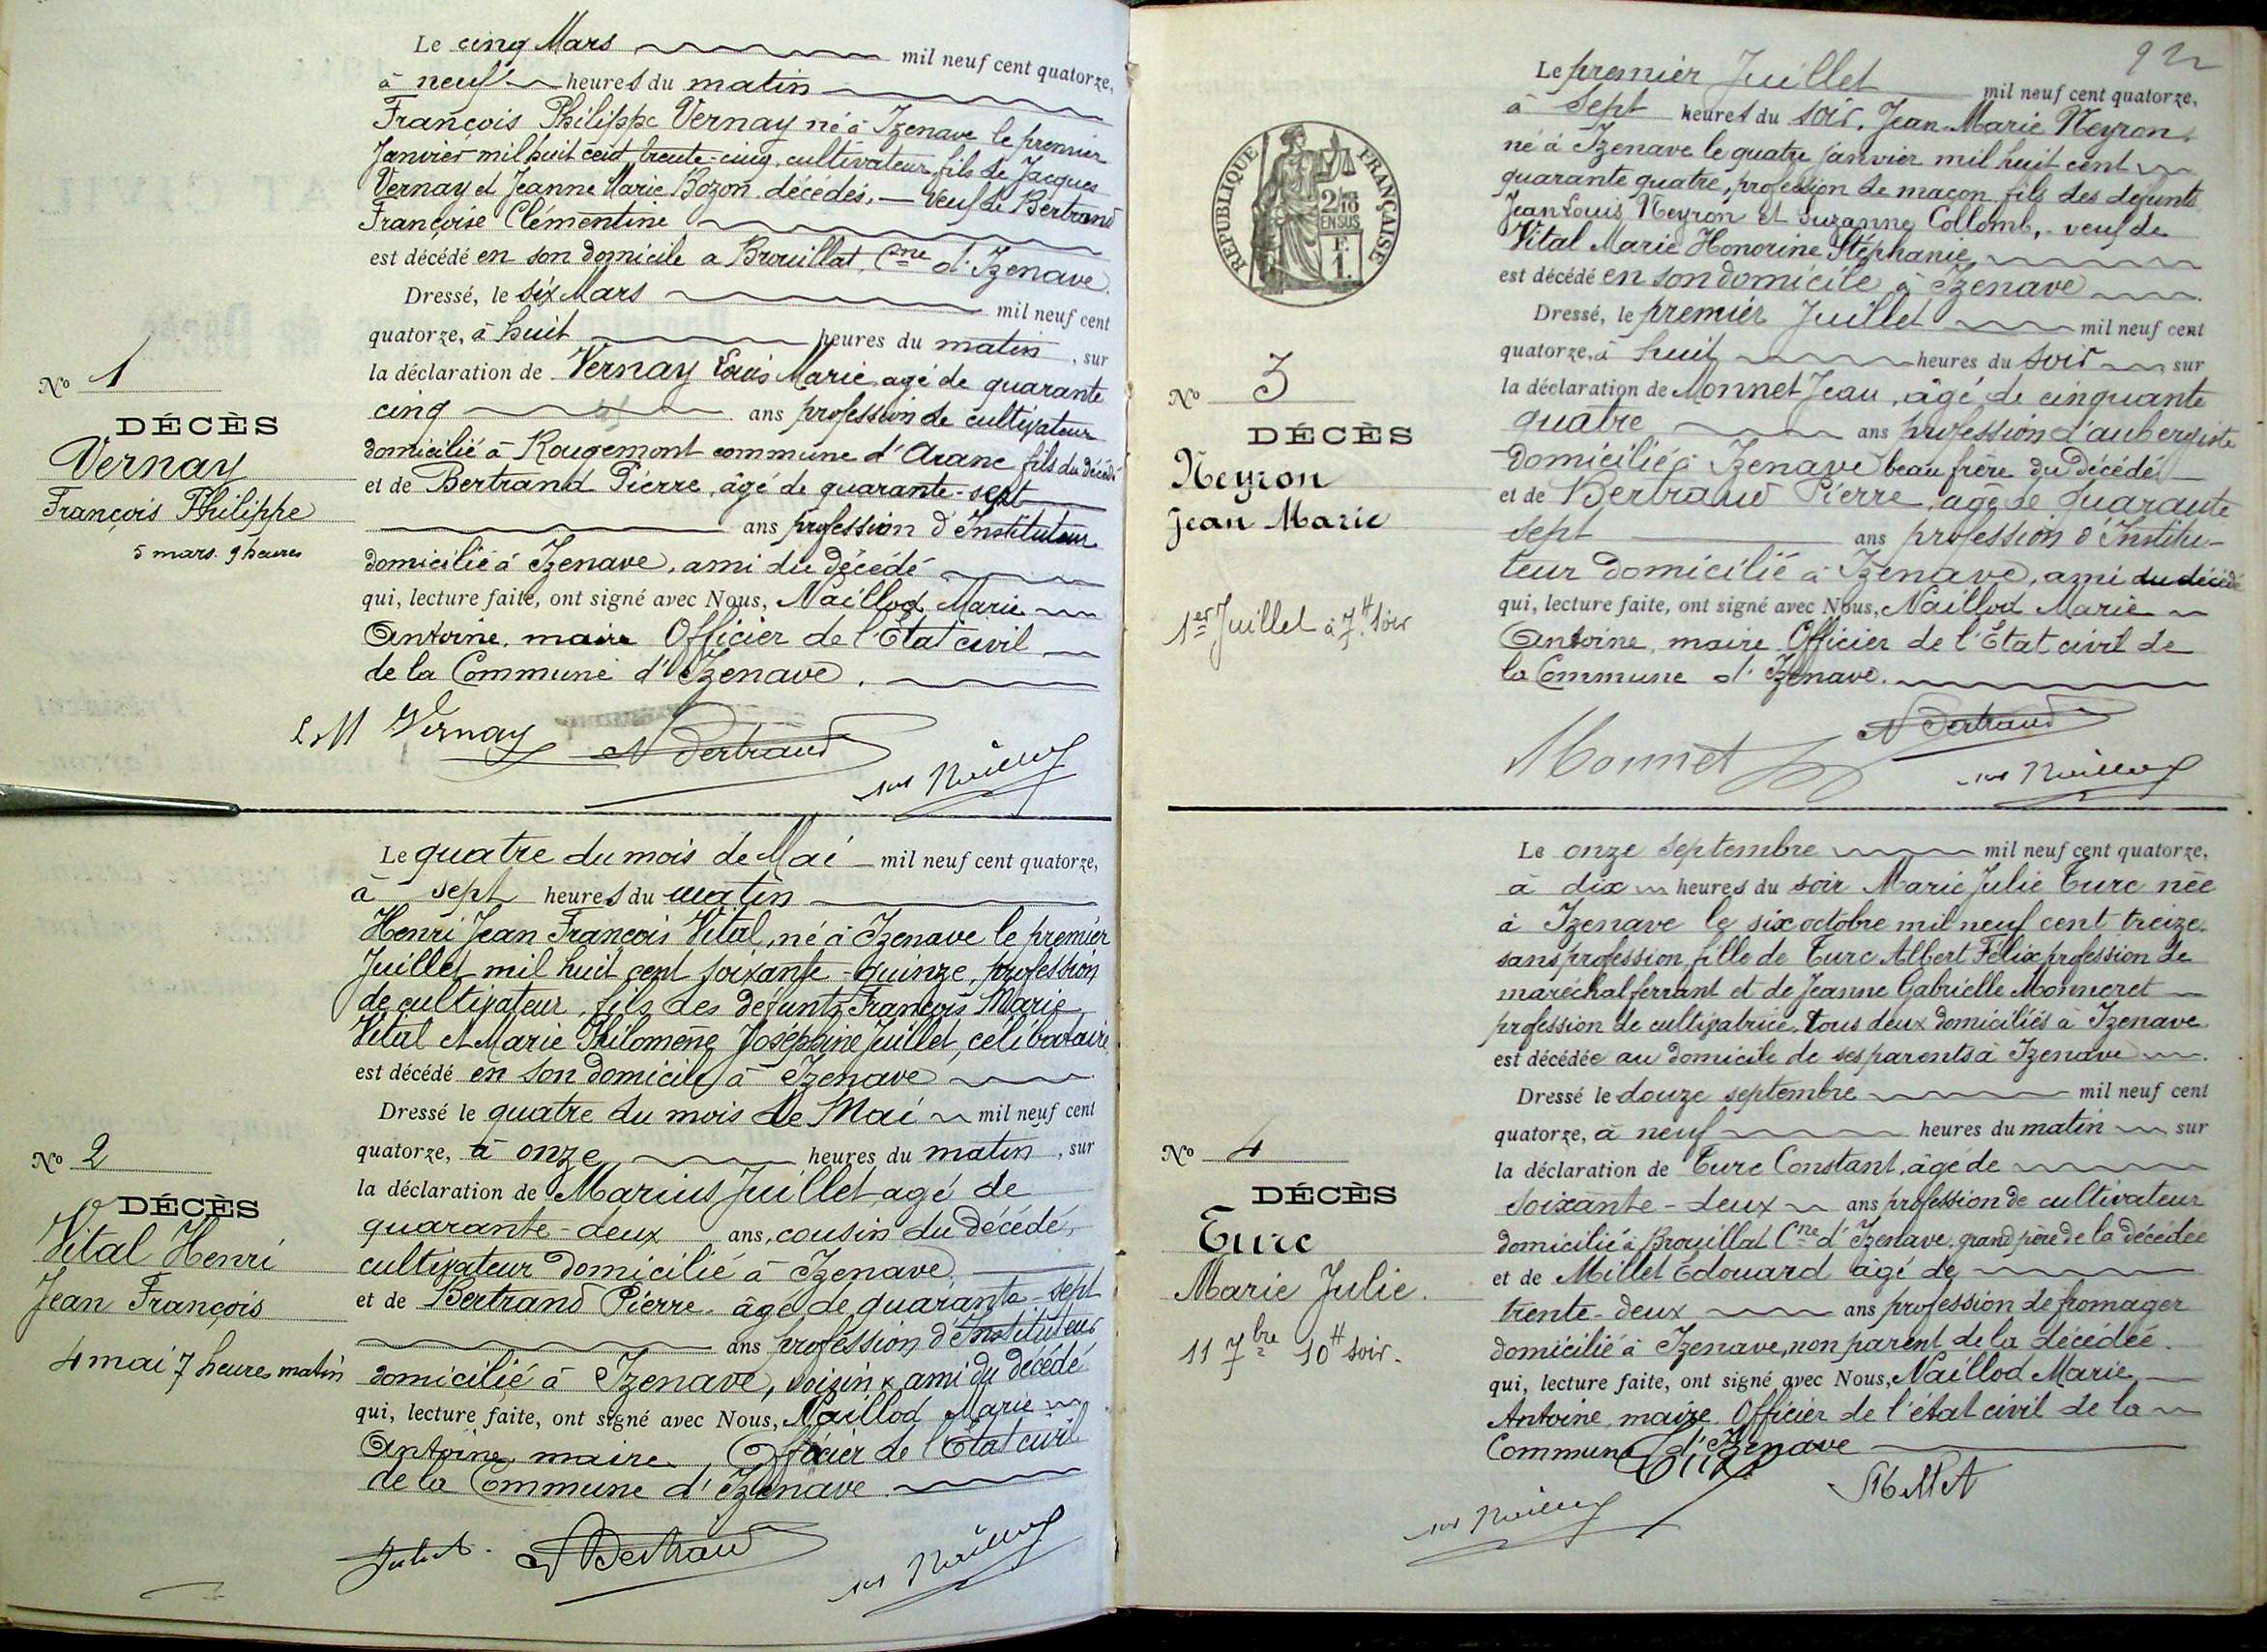 Le cinq Mars mil neuf cent quatorze,
à neuf heures du matin
François Philippe Vernay né à Izenave le premier
Janvier mil huit cent trente-cinq, cultivateur, fils de Jacques
Vernay et Jeanne Marie Bozon, décédés, — veuf de Bertrand
Françoise Clémentine
est décédé en son domicile a Brouillat, Cne d'Izenave.
Dressé, le six Mars mil neuf cent
quatorze, à huit heures du matin, sur
la déclaration de Vernay Louis Marie, agé de quarante
cinq ans profession de cultivateur
domicilié à Rougemont commune d'Aranc fils du décédé
et de Bertrand Pierre, âgé de quarante-sept
ans profession d'Instituteur
domicilié à Izenave, ami du décédé
qui, lecture faite, ont signé avec Nous, Naillod Marie
Antoine, maire Officier de l'Etat civil
de la Commune d'Izenave.
No 1
DÉCÈS
Vernay
François Philippe
5 mars. 9 heures
L M Vernay Bertrand
Le quatre du mois de Mai — mil neuf cent quatorze,
à sept heures du matin
Henri Jean François Vital, né à Izenave le premier
Juillet mil huit cent soixante-quinze, profession
de cultivateur, fils des défunts François Marie
Vital et Marie Philomène Joséphine Juillet, célibataire,
est décédé en son domicile à Izenave
Dressé le quatre du mois de Mai mil neuf cent
quatorze, à onze heures du matin, sur
la déclaration de Marius Juillet, agé de
quarante-deux ans, cousin du décédé,
cultivateur domicilié à Izenave,
et de Bertrand Pierre. âgé de quarante-sept
ans profession d'Instituteur
domicilié à Izenave, voisin & ami du décédé
qui, lecture faite, ont signé avec Nous, Naillod Marie
Antoine, maire, Officier de l'Etat civil
de la Commune d'Izenave
No 2
DÉCÈS
Vital Henri
Jean François
4 mai 7 heures matin
Bertrand
92
RÉPUBLIQUE FRANÇAISE
2/10
EN SUS
F.
1.
Le premier Juillet mil neuf cent quatorze,
à sept heures du soir, Jean-Marie Neyron,
né à Izenave le quatre janvier mil huit cent
quarante quatre, profession de maçon, fils des defunts
Jean Louis Neyron et Suzanne Collomb, veuf de
Vital Marie Honorine Stéphanie,
est décédé en son domicile à Izenave
Dressé, le premier Juillet mil neuf cent
quatorze, à huit heures du soir sur
la déclaration de Monnet Jean, âgé de cinquante
quatre ans profession d'aubergiste
domicilié à Izenave beau frère du décédé
et de Bertrand Pierre, agé de quarante
sept ans profession d'Institu-
teur domicilié à Izenave, ami du décédé
qui, lecture faite, ont signé avec Nous, Naillod Marie
Antoine, maire Officier de l'Etat civil de
la Commune d'Izenave.
No 3
DÉCÈS
Neyron
Jean Marie
1er Juillet à 7H. soir
Monnet Bertrand
Le onze septembre mil neuf cent quatorze,
à dix heures du soir Marie Julie Turc née
à Izenave le six octobre mil neuf cent treize.
sans profession, fille de Turc Albert Félix profession de
maréchal ferrant et de Jeanne Gabrielle Monneret
profession de cultivatrice, tous deux domiciliés à Izenave
est décédée au domicile de ses parents à Izenave
Dressé le douze septembre mil neuf cent
quatorze, à neuf heures du matin sur
la déclaration de Turc Constant, âgé de
soixante-deux ans profession de cultivateur
domicilié à Brouillat Cne d'Izenave. grand père de la décédée
et de Millet Edouard agé de
trente-deux ans profession de fromager
domicilié à Izenave, non parent de la décédée.
qui, lecture faite, ont signé avec Nous, Naillod Marie
Antoine, maire Officier de l'état civil de la
Commune d'Izenave
No 4
DÉCÈS
Turc
Marie Julie.
11 7bre 10H soir.